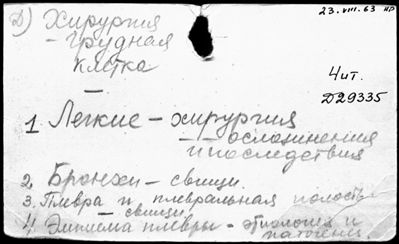 Д) Хирургия
23.VIII.63 НР
- грудная
клетка
4ит.
Д29335
1. Легкие - хирургия
- осложнения
и последствия
2. Бронхи - свищи.
3. Плевра и плевральная полость
- свищи
4. Эмпиема плевры - этиология и
патогенез